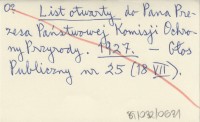 Oz
List otwarty do Pana Pre-
zesa Państwowej Komisji Ochro-
ny Przyrody. 1927. — Głos
Publiczny nr 25 (18 VII).